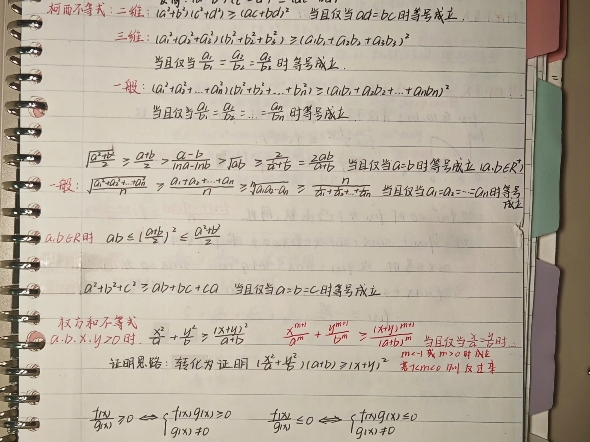 柯西不等式：二维：(a²+b²)(c²+d²) ≥ (ac+bd)² 当且仅当 ad=bc 时等号成立.
三维：(a₁²+a₂²+a₃²)(b₁²+b₂²+b₃²) ≥ (a₁b₁+a₂b₂+a₃b₃)²
当且仅当 a₁/b₁ = a₂/b₂ = a₃/b₃ 时等号成立
一般：(a₁²+a₂²+…+aₙ²)(b₁²+b₂²+…+bₙ²) ≥ (a₁b₁+a₂b₂+…+aₙbₙ)²
当且仅当 a₁/b₁ = a₂/b₂ = … = aₙ/bₙ 时等号成立.
√((a²+b²)/2) ≥ (a+b)/2 > (a-b)/(lna-lnb) > √ab ≥ 2/(1/a+1/b) = 2ab/(a+b) 当且仅当 a=b 时等号成立 (a.b∈R⁺)
一般：√((a₁²+a₂²+…+aₙ²)/n) ≥ (a₁+a₂+…+aₙ)/n ≥ ⁿ√(a₁a₂…aₙ) ≥ n/(1/a₁+1/a₂+…+1/aₙ) 当且仅当 a₁=a₂=…=aₙ 时等号成立
a.b∈R时 ab ≤ ((a+b)/2)² ≤ (a²+b²)/2
a²+b²+c² ≥ ab+bc+ca 当且仅当 a=b=c 时等号成立
权方和不等式
a.b.x.y>0时. x²/a + y²/b ≥ (x+y)²/(a+b) xᵐ⁺¹/aᵐ + yᵐ⁺¹/bᵐ ≥ (x+y)ᵐ⁺¹/(a+b)ᵐ 当且仅当 x/a = y/b 时.
m<-1 或 m>0 时 成立
证明思路：转化为证明 (x²/a + y²/b)(a+b) ≥ (x+y)² 若-1<m<0 则反过来
f(x)/g(x) ≥ 0 ⇔ { f(x)g(x) ≥ 0 f(x)/g(x) ≤ 0 ⇔ { f(x)g(x) ≤ 0
g(x) ≠ 0 g(x) ≠ 0